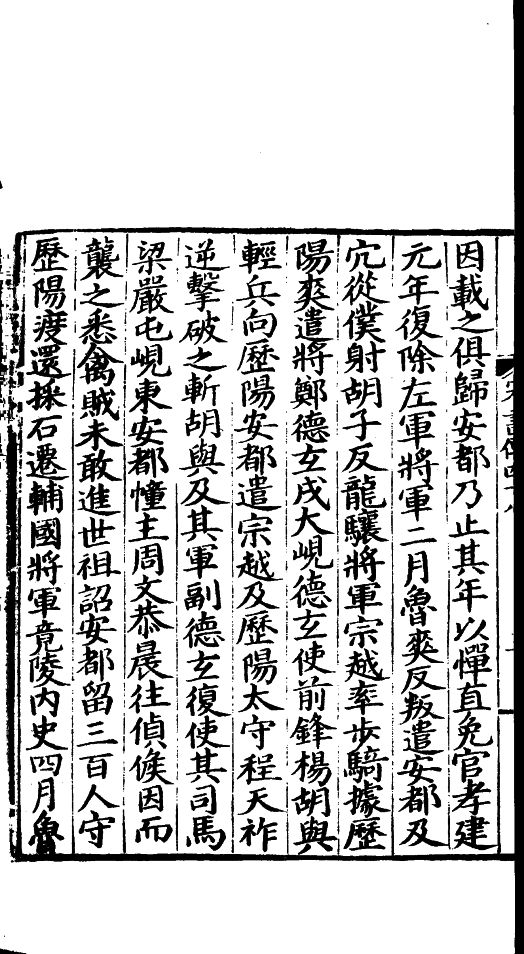 因載之俱歸安都乃止其年以憚直免官孝建
元年復除左軍將軍二月魯爽反叛遣安都及
宂從僕射胡子反龍驤將軍宗越率步騎據歷
陽爽遣將鄭德玄戍大峴德玄使前鋒楊胡與
輕兵向歷陽安都遣宗越及歷陽太守程天祚
逆擊破之斬胡與及其軍副德玄復使其司馬
梁嚴屯峴東安都幢主周文恭晨往偵候因而
襲之悉禽賊未敢進世祖詔安都留三百人守
歷陽渡還採石遷輔國將軍竟陵內史四月魯